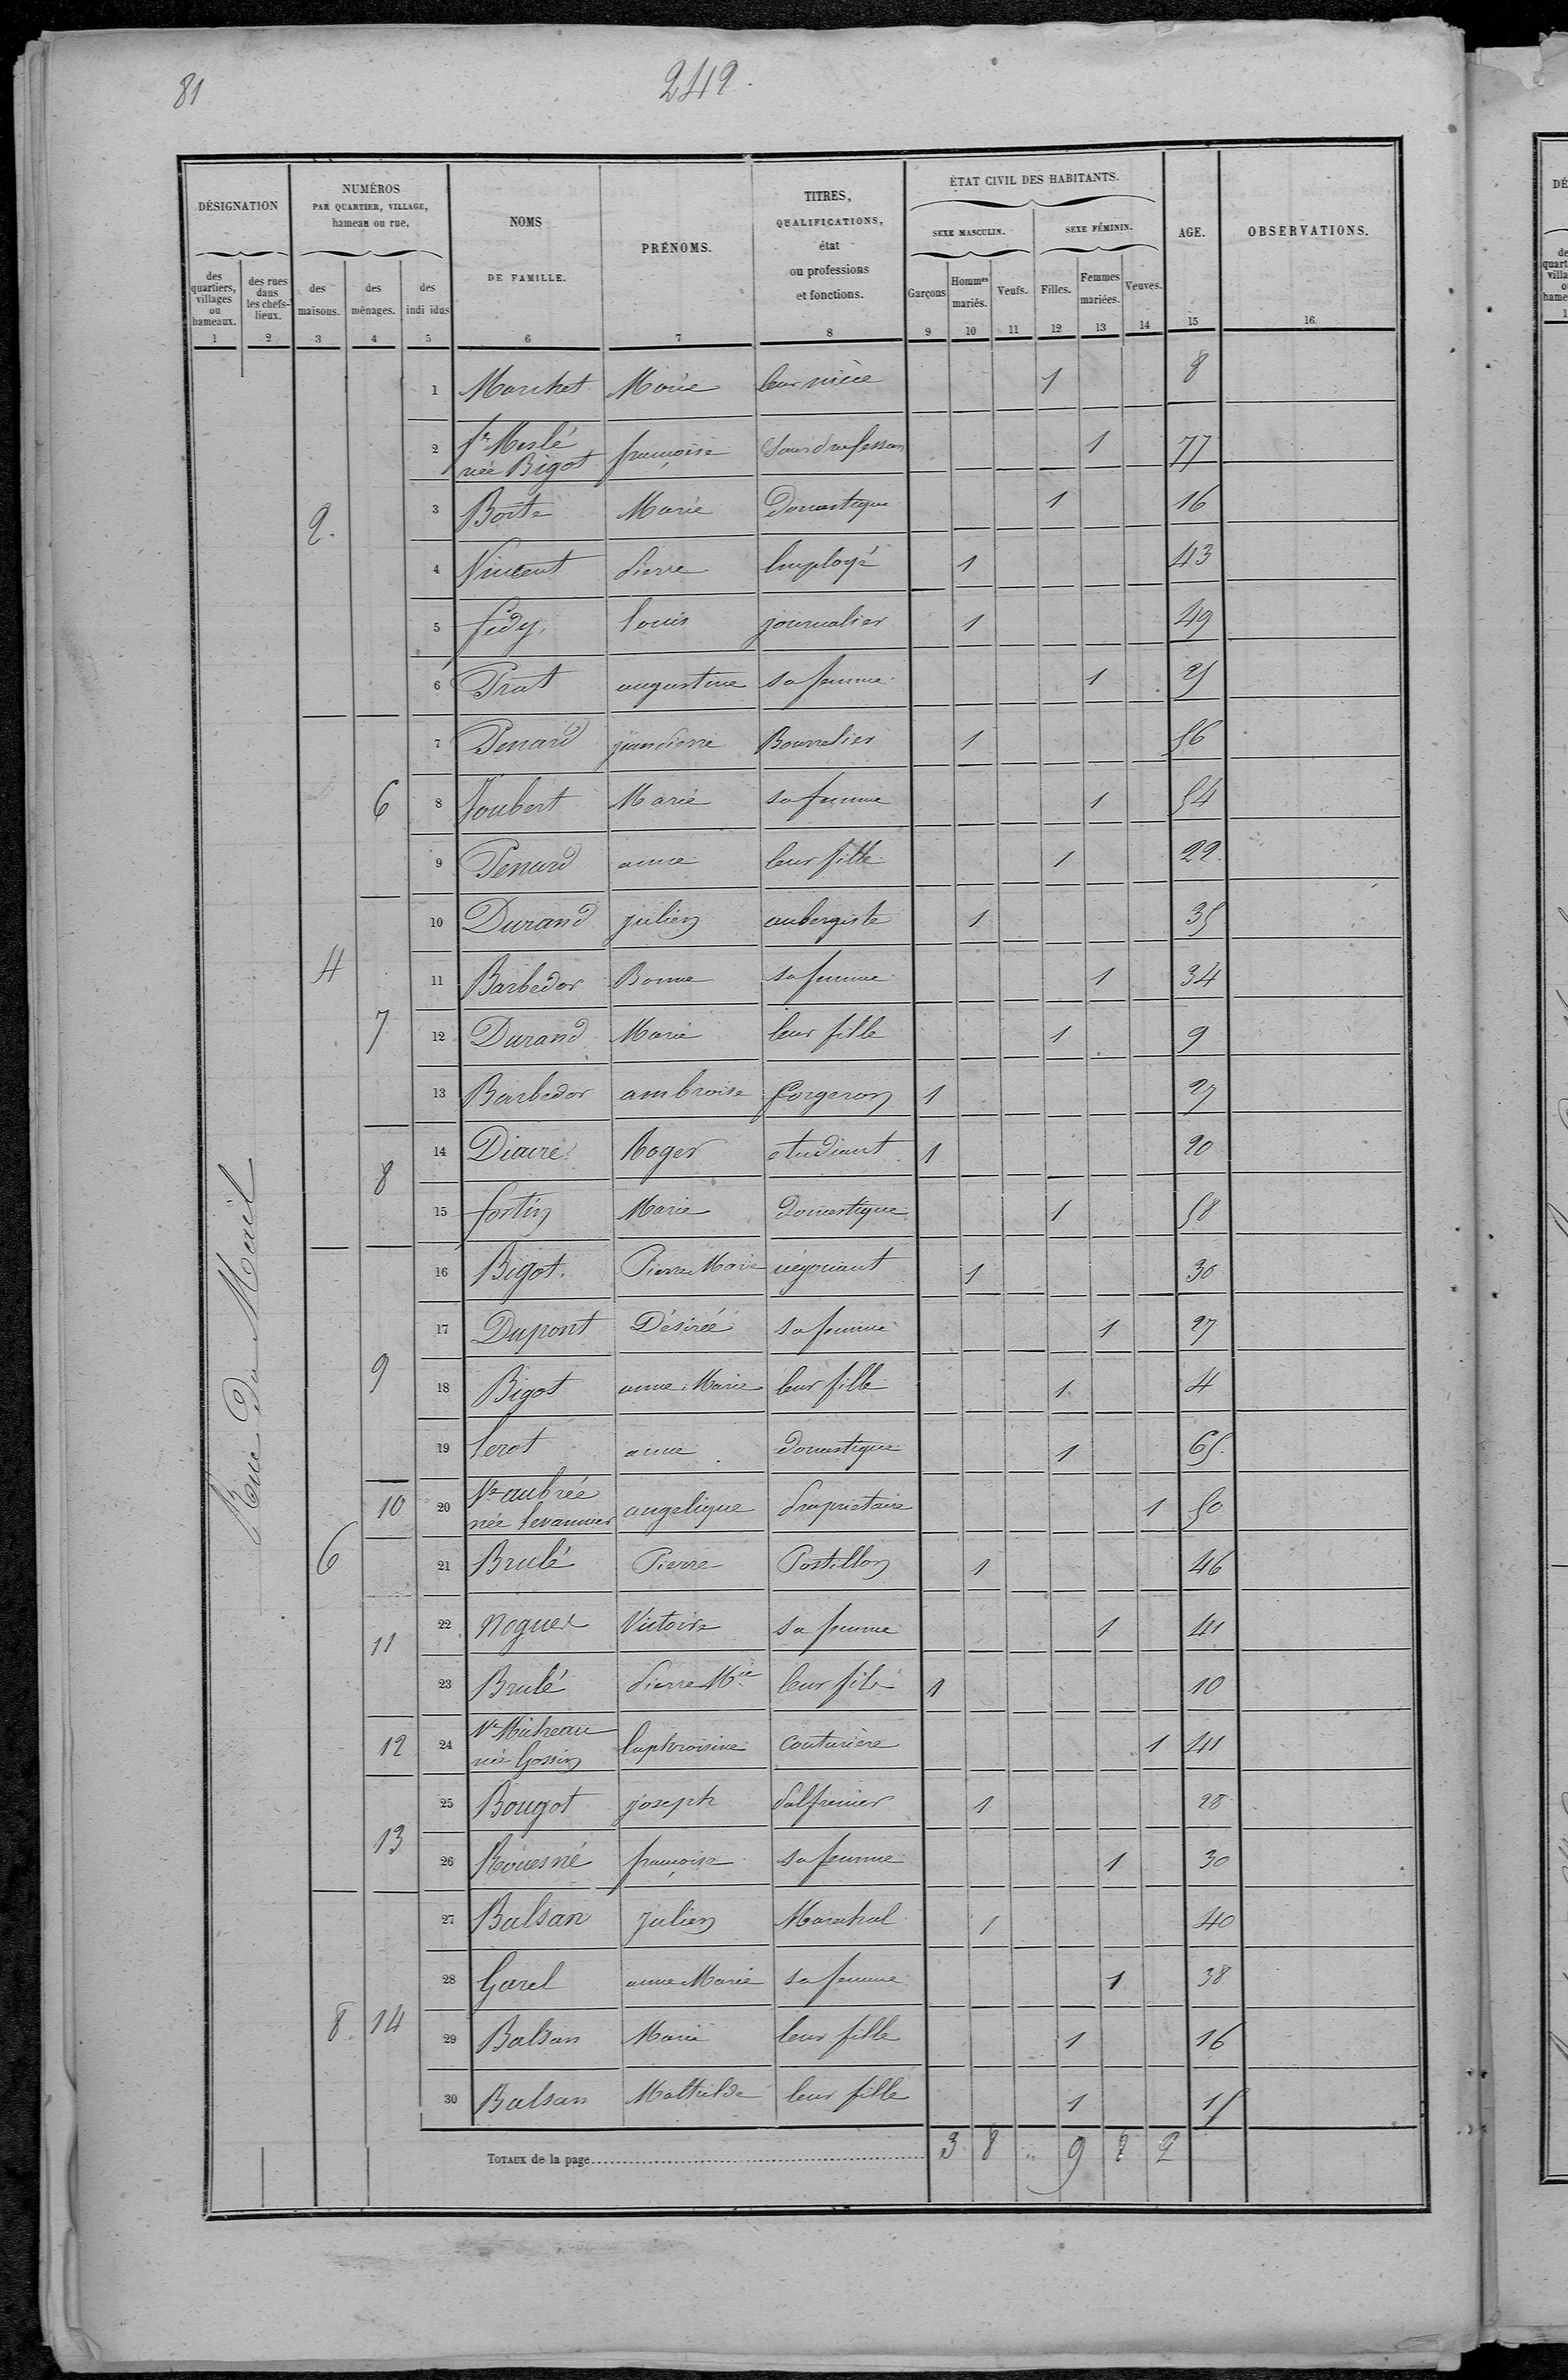 81
242
DÉSIGNATION
NUMÉROS
PAR QUARTIER, VILLAGE,
hameau ou rue,
NOMS
DE FAMILLE.
PRÉNOMS.
TITRES,
QUALIFICATIONS,
état
ou professions
et fonctions.
ÉTAT CIVIL DES HABITANTS.
SEXE MASCULIN.
SEXE FÉMININ.
AGE.
OBSERVATIONS.
des quartiers, villages ou hameaux.
des rues dans les chefs-lieux.
des maisons.
des ménages.
des indi idus
Garçons
Hommes mariés.
Veufs.
Filles.
Femmes mariées.
Veuves.
1 2 3 4 5 6 7 8 9 10 11 12 13 14 15 16
Rue du Mail
1 Marie leur nièce 1 8
2 fe Meslé née Bigot françoise 1 77
2. 3 Marie Domestique 1 16
4 Vincent Pierre Employé 1 43
5 fédy Louis journalier 1 49
6 Prat augustine sa femme 1 25
7 Penard jean Pierre Bourrelier 1 56
6 8 Joubert Marie sa femme 1 54
9 Penard anne leur fille 1 22
10 Durand julien aubergiste 1 35
4 11 Barbedor Bonne sa femme 1 34
7 12 Durand Marie leur fille 1 9
13 Barbedor ambroise forgeron 1 27
14 Diacre Roger etudiant 1 20
8 15 fortin Marie domestique 1 58
16 Bigot Pierre Marie négociant 1 30
17 Dupont Désirée sa femme 1 27
9 18 Bigot anne Marie leur fille 1 4
19 Lerot anne domestique 1 65
10 20 Ve aubrée née Levannier angelique Propriétaire 1 50
6 21 Brulé Pierre Postillon 1 46
11 22 Noguet Victoire sa femme 1 41
23 Brulé Pierre Mie leur fils 1 10
12 24 Ve Micheau née Gossin Euphroisine couturière 1 41
25 Bougot joseph Palfrenier 1 28
13 26 Rouesné françoise sa femme 1 30
27 Balsan julien Marechal 1 40
28 Garel anne Marie sa femme 1 38
8. 14 29 Balsan Marie leur fille 1 16
30 Balsan Mathilde leur fille 1 15
TOTAUX de la page 3 8 " 9 8 2